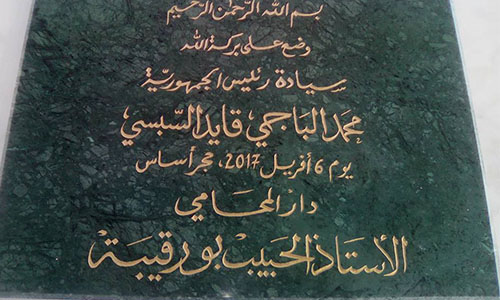 بسم الله الرحمن الرحيم
وضع على بركة الله
سيادة رئيس الجمهورية
محمد الباجي قايد السبسي
يوم 6 أفريل 2017، حجر أساس
دار المحامي
الأستاذ الحبيب بورقيبة